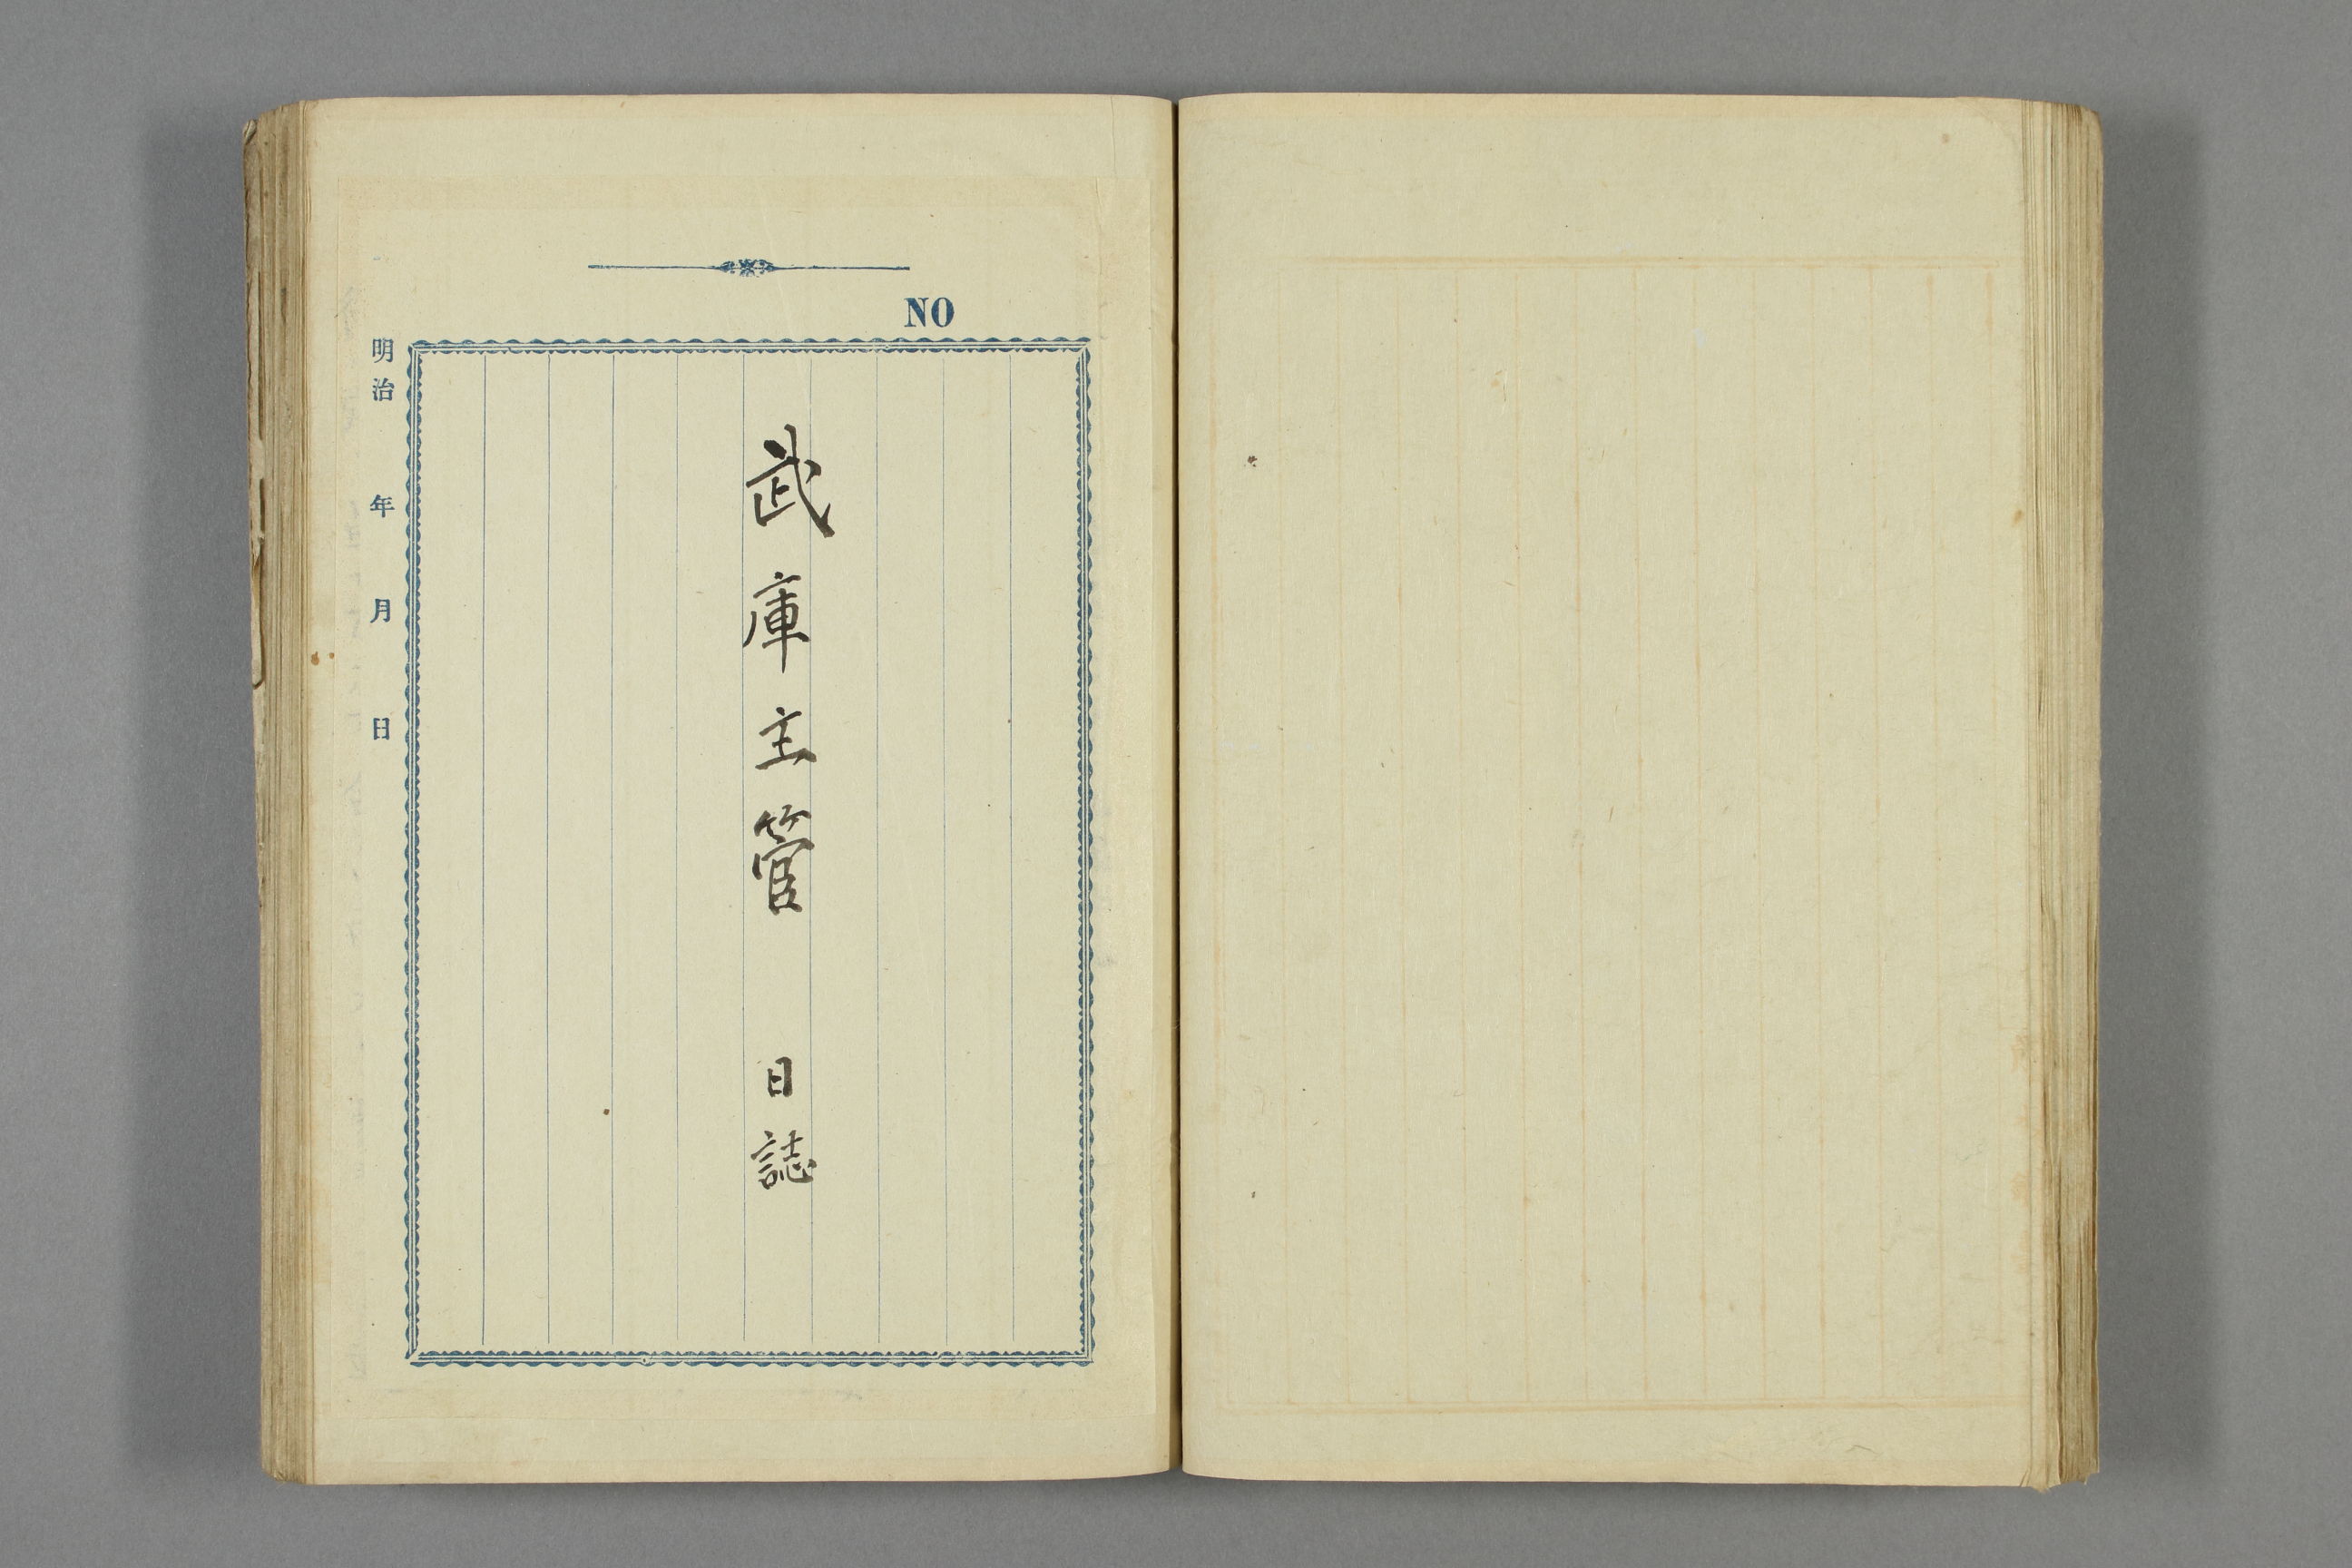 NO
武庫主管 日誌
明治 年 月 日